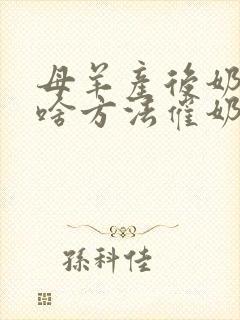 母羊産後奶
啥方法催奶
孫科佳